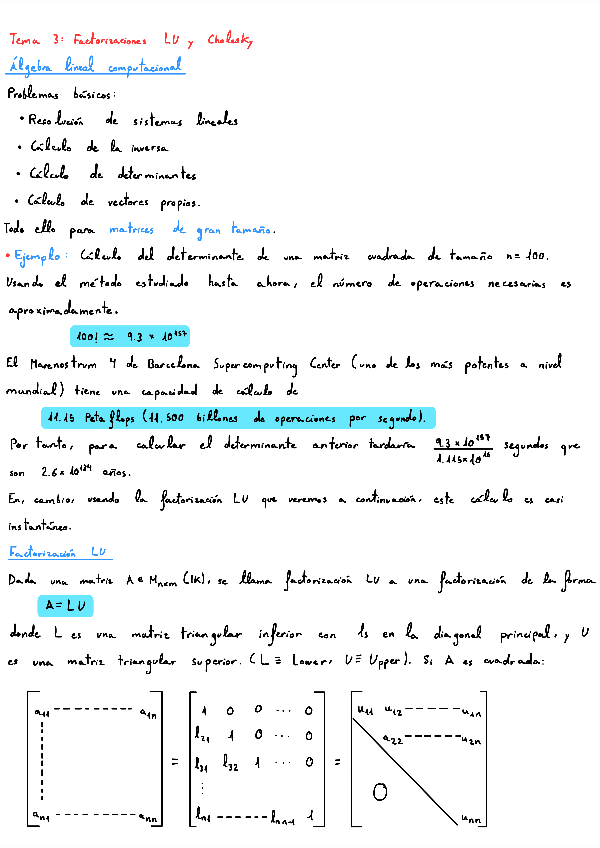 Tema 3: Factorizaciones LU y Cholesky
Álgebra lineal computacional
Problemas básicos:
• Resolución de sistemas lineales
• Cálculo de la inversa
• Cálculo de determinantes
• Cálculo de vectores propios.
Todo ello para matrices de gran tamaño.
• Ejemplo: Cálculo del determinante de una matriz cuadrada de tamaño n = 100.
Usando el método estudiado hasta ahora, el número de operaciones necesarias es
aproximadamente.
100! ≈ 9.3 × 10¹⁵⁷
El Marenostrum 4 de Barcelona Supercomputing Center (uno de los más potentes a nivel
mundial) tiene una capacidad de cálculo de
11.15 Peta flops (11.500 billones de operaciones por segundo).
Por tanto, para calcular el determinante anterior tardaría 9.3 × 10¹⁵⁷ / 1.115 × 10¹⁶ segundos que
son 2.6 × 10¹³⁴ años.
En, cambio, usando la factorización LU que veremos a continuación, este cálculo es casi
instantáneo.
Factorización LU
Dada una matriz A ∈ Mₙₓₘ (IK), se llama factorización LU a una factorización de la forma
A = LU
donde L es una matriz triangular inferior con 1s en la diagonal principal, y U
es una matriz triangular superior. (L ≡ Lower, U ≡ Upper). Si A es cuadrada:
a₁₁ ------- a₁ₙ 1 0 0 ... 0 u₁₁ u₁₂ ------- u₁ₙ
l₂₁ 1 0 ... 0 a₂₂ ------- u₂ₙ
= l₃₁ l₃₂ 1 ... 0 =
⋮ 0
aₙ₁ ------- aₙₙ lₙ₁ ------- lₙₙ₋₁ 1 uₙₙ